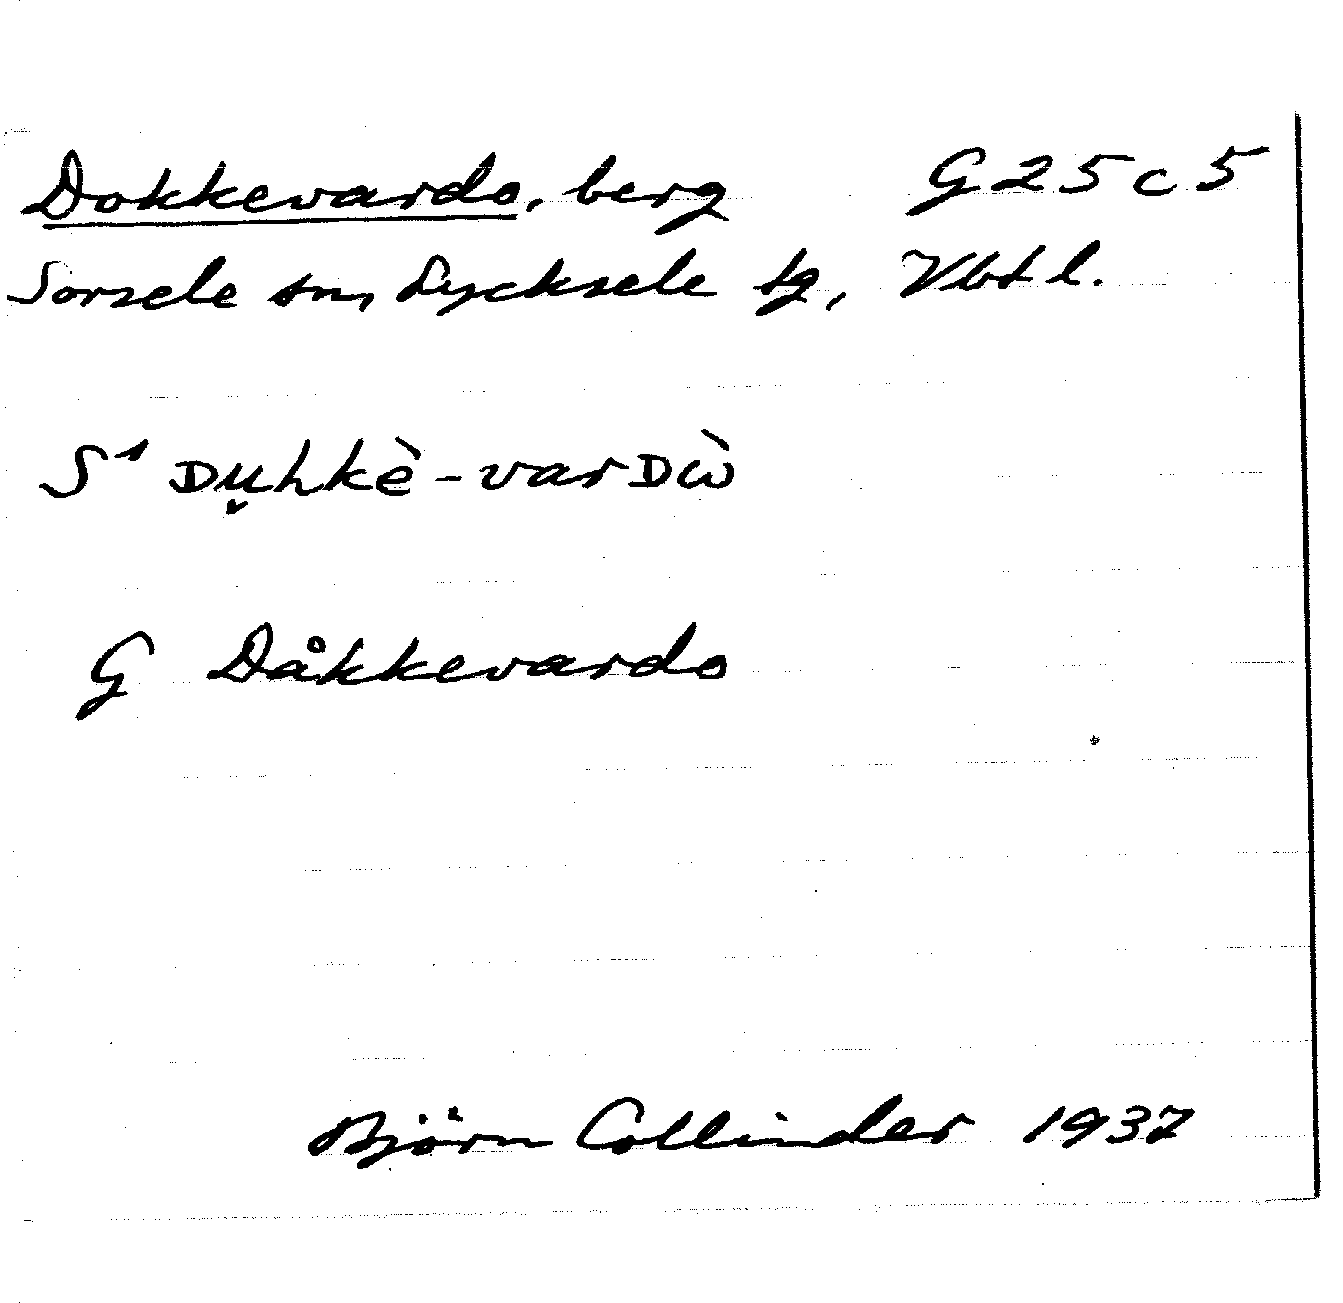 Dokkevardo, berg G25c5
Sorsele sn, Lycksele tg, Vbtl.
S¹ ᴅu̬hkè-varᴅὼ
G Dåkkevardo
Björn Collinder 1937